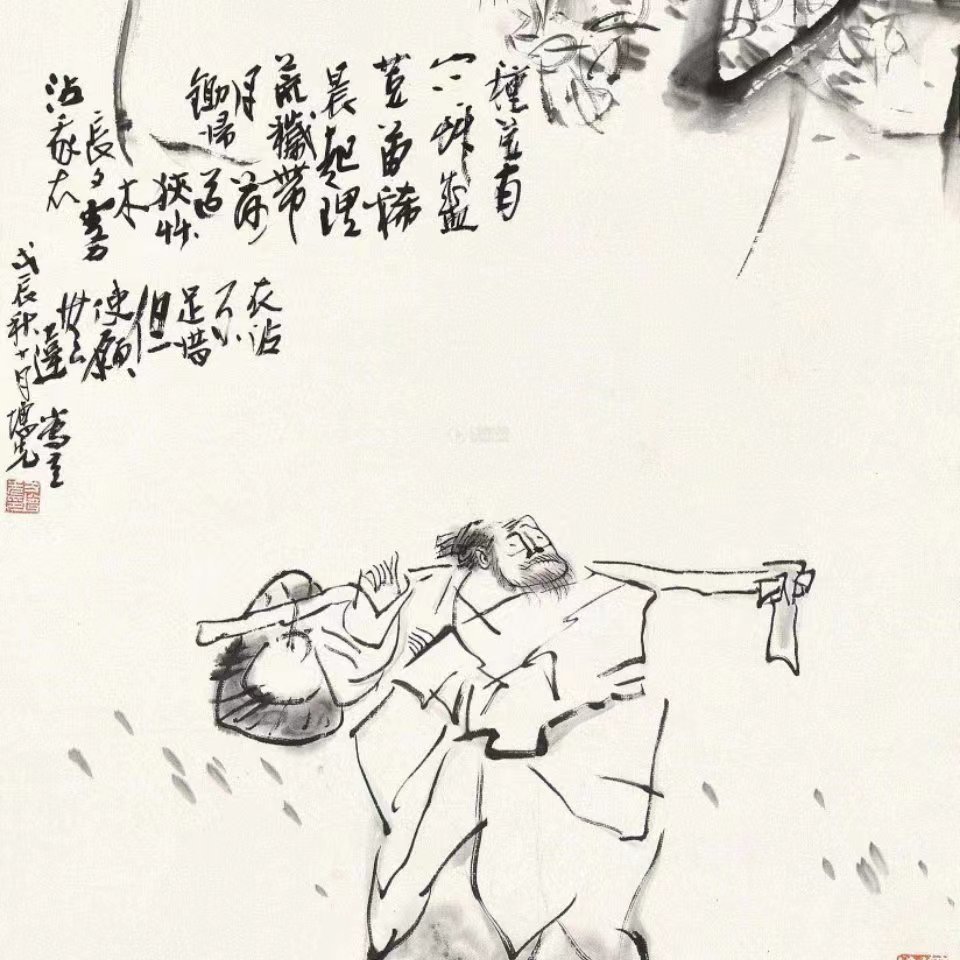 種荳南
山下艸盛
荳苗稀
晨起理
荒穢帶
月荷
鋤歸道
狹艸
木
長夕露
沾我衣
衣沾
不
足惜
但
使願
無違
戊辰秋十月